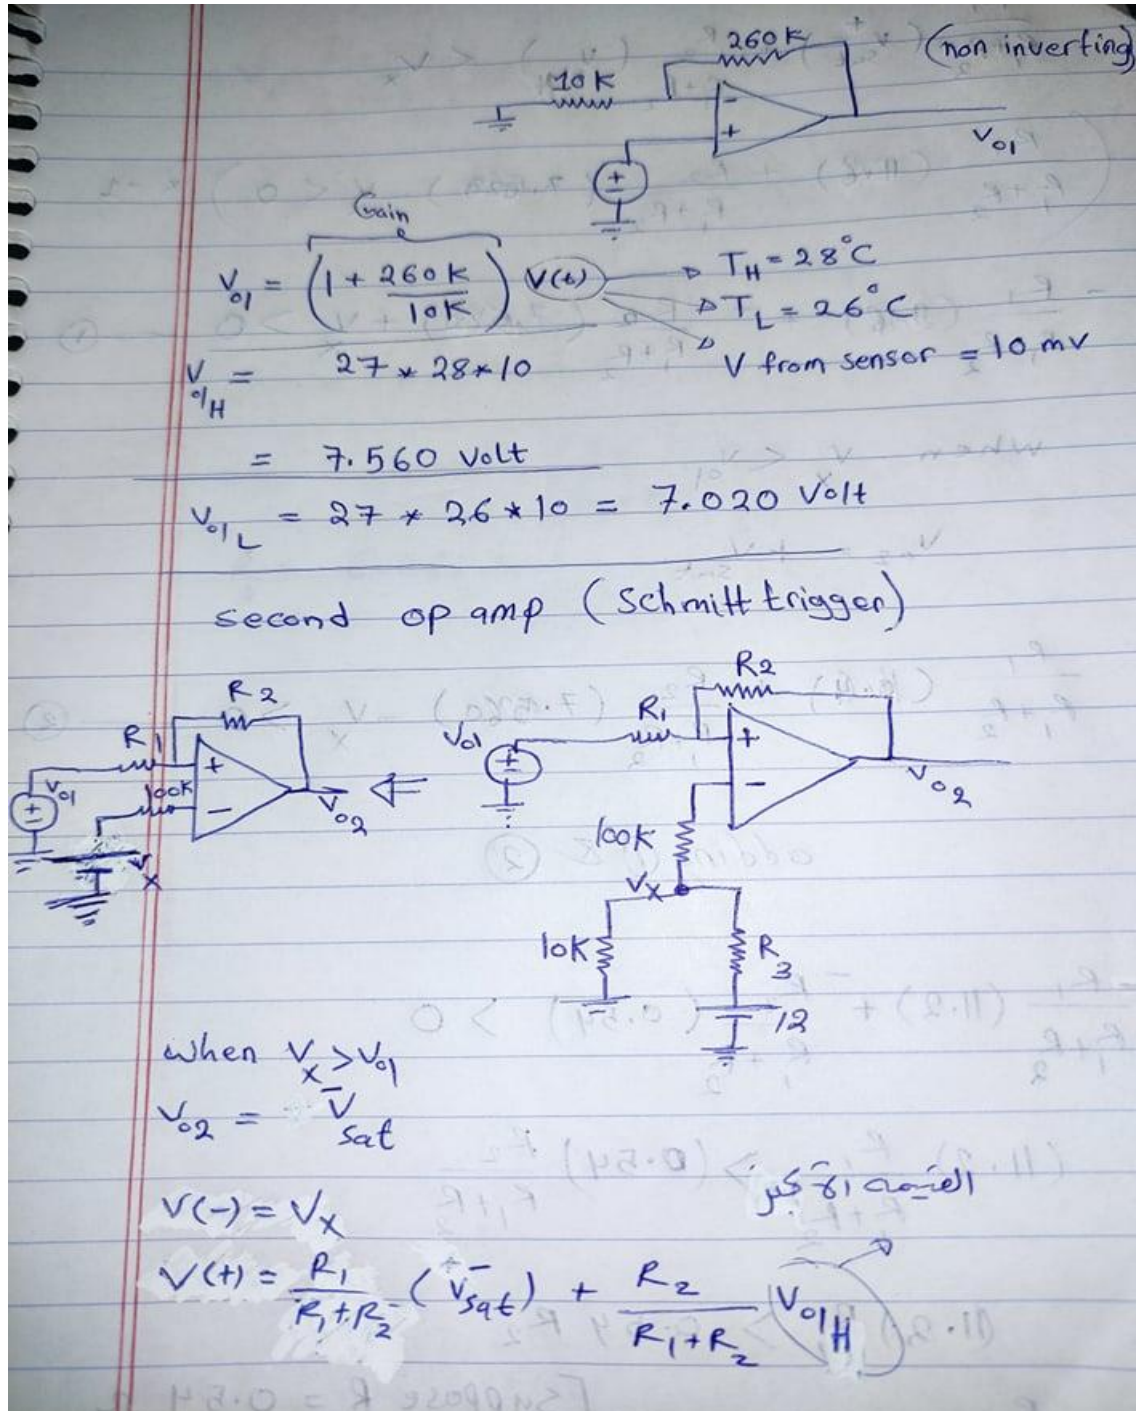 260K (non inverting)
10K
-
+
V01
+
-
Gain
V01 = (1 + 260K / 10K) V(t) → TH = 28°C
→ TL = 26°C
→ V from sensor = 10 mv
V01H = 27 * 28 * 10
= 7.560 Volt
V01L = 27 * 26 * 10 = 7.020 Volt
second op amp (Schmitt trigger)
R2
R1
V01
100K
+
-
V02
Vx
⇐
R2
V01
R1
+
-
V02
100K
Vx
10K
R3
12
when Vx > V01
V02 = V̄sat
القيمة الأكبر
V(-) = Vx
V(+) = R1 / (R1 + R2) (V̄sat) + R2 / (R1 + R2) V01H